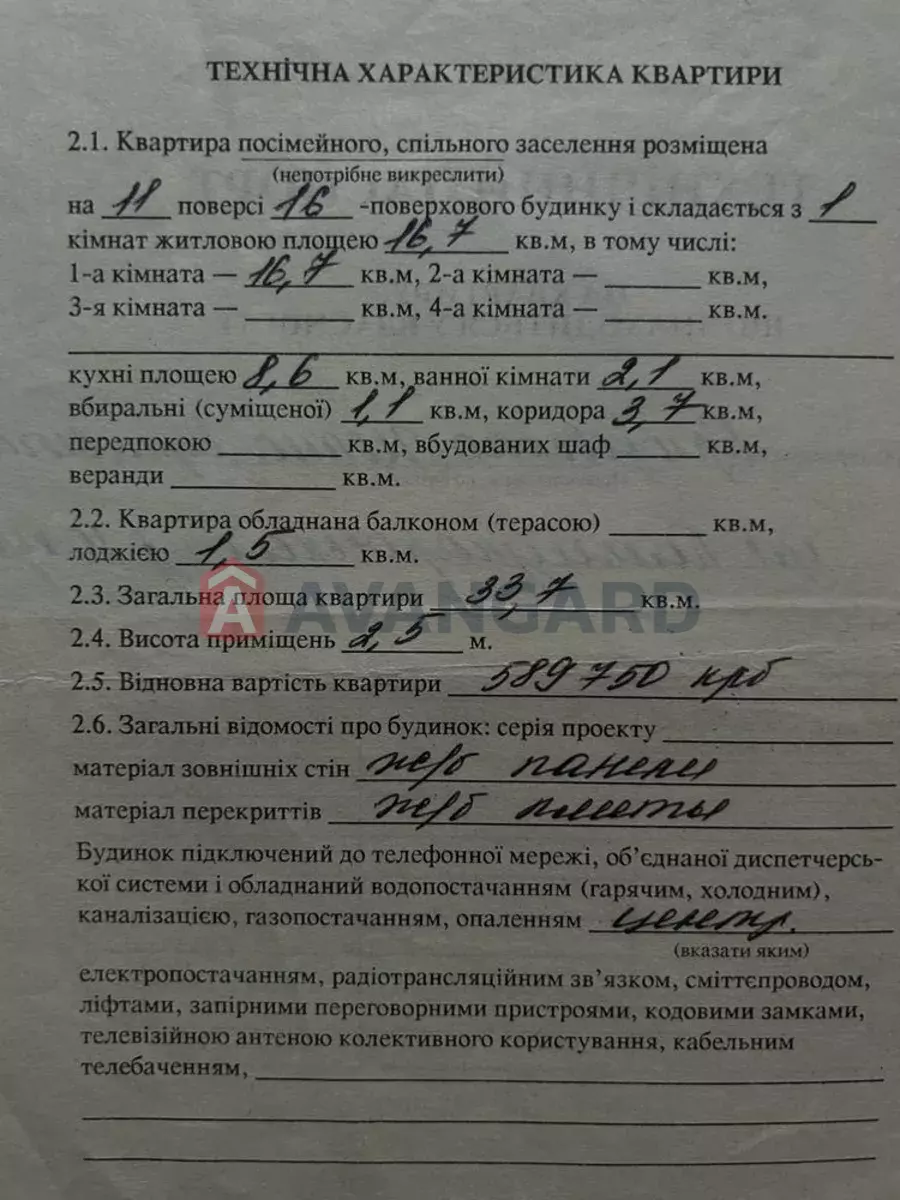 ТЕХНІЧНА ХАРАКТЕРИСТИКА КВАРТИРИ
2.1. Квартира посімейного, спільного заселення розміщена
(непотрібне викреслити)
на 11 поверсі 16 -поверхового будинку і складається з 1
кімнат житловою площею 16,7 кв.м, в тому числі:
1-а кімната — 16,7 кв.м, 2-а кімната — ______ кв.м,
3-я кімната — ______ кв.м, 4-а кімната — ______ кв.м.
кухні площею 8,6 кв.м, ванної кімнати 2,1 кв.м,
вбиральні (суміщеної) 1,1 кв.м, коридора 3,7 кв.м,
передпокою ______ кв.м, вбудованих шаф ______ кв.м,
веранди ______ кв.м.
2.2. Квартира обладнана балконом (терасою) ______ кв.м,
лоджією 1,5 кв.м.
AVANGARD
2.3. Загальна площа квартири 33,7 кв.м.
2.4. Висота приміщень 2,5 м.
2.5. Відновна вартість квартири 589750 крб
2.6. Загальні відомості про будинок: серія проекту ______
матеріал зовнішніх стін ж/б панели
матеріал перекриттів ж/б плиты
Будинок підключений до телефонної мережі, об’єднаної диспетчерсь-
кої системи і обладнаний водопостачанням (гарячим, холодним),
каналізацією, газопостачанням, опаленням центр.
(вказати яким)
електропостачанням, радіотрансляційним зв’язком, сміттєпроводом,
ліфтами, запірними переговорними пристроями, кодовими замками,
телевізійною антеною колективного користування, кабельним
телебаченням, ______